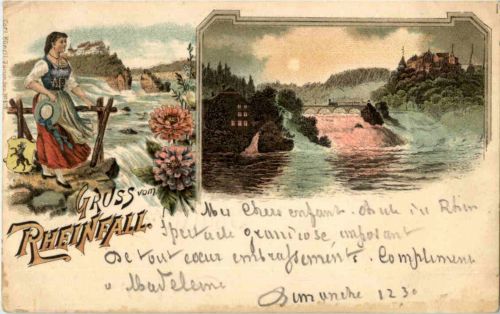 GRUSS vom
RHEINFALL.
Mes Chers enfant. Chute du Rhin
Spectacle grandiose, imposant
De tout cœur embrassement. Compliment
a Madeleine
Dimanche 12 30